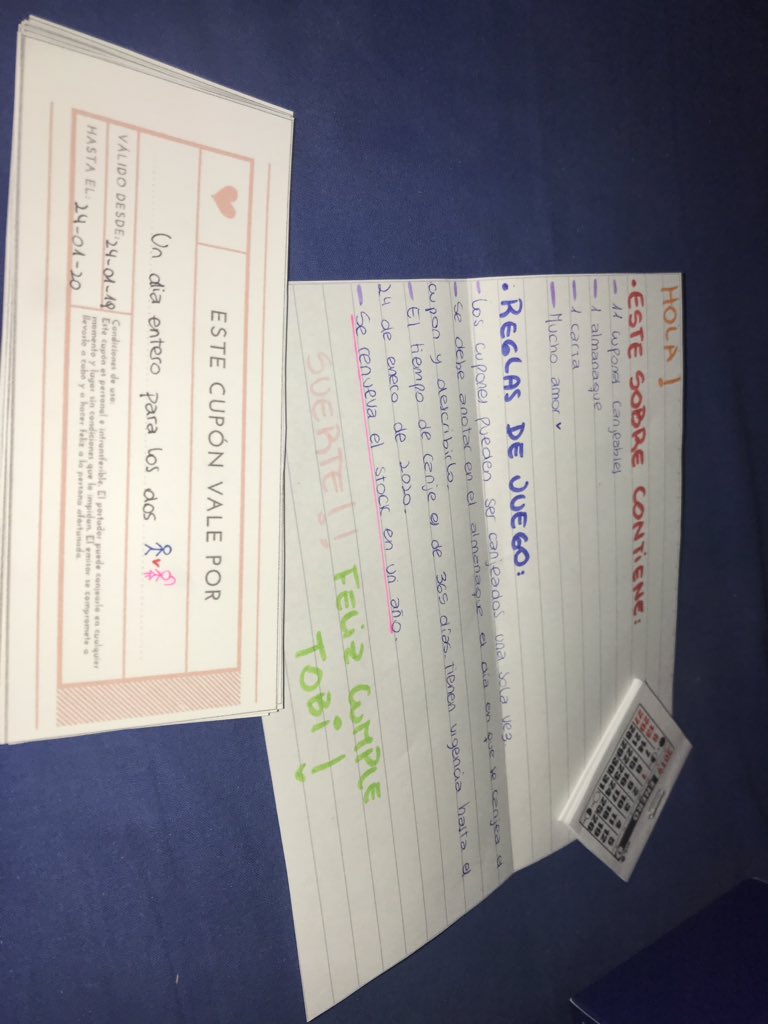 HOLA!
• ESTE SOBRE CONTIENE:
- 11 cupones canjeables
- 1 almanaque
- 1 carta
- Mucho amor ♥
• REGLAS DE JUEGO:
- Los cupones pueden ser canjeados una sola vez.
- Se debe anotar en el almanaque el día en que se canjea el
cupón y describirlo.
- El tiempo de canje es de 365 días. Tienen vigencia hasta el
24 de enero de 2020.
- Se renueva el stock en un año.
SUERTE!! FELIZ CUMPLE
TOBI!
ESTE CUPÓN VALE POR
Un día entero para los dos
VÁLIDO DESDE: 24-01-19
HASTA EL: 24-01-20
Condiciones de uso:
Este cupón es personal e intransferible. El portador puede canjearlo en cualquier
momento y lugar sin condiciones que lo impidan. El emisor se compromete a
llevarlo a cabo y a hacer feliz a la persona afortunada.
2019 ENERO